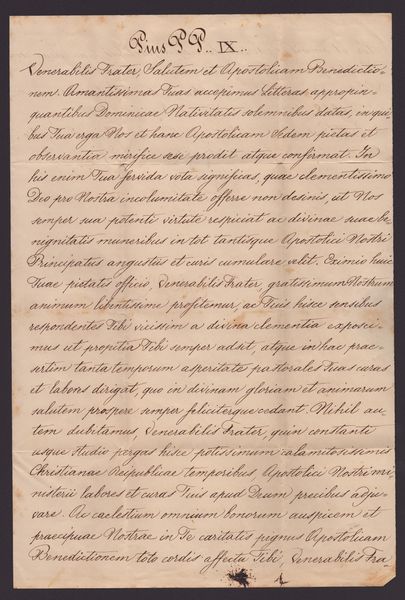 Pius P P.. IX..
Venerabilis Frater, Salutem et Apostolicam Benedictio-
nem. Amantissimas Tuas accepimus Litteras appropin-
quantibus Dominicae Nativitatis solemnibus datas, in qui-
bus Tua erga Nos et hanc Apostolicam Sedem pietas et
observantia mirifice sese prodit atque confirmat. In
his enim Tua fervida vota significas, quae clementissimo
Deo pro Nostra incolumitate offerre non desinis, ut Nos
semper sua potenti virtute respiciat ac divinae suae be
nignitatis muneribus in tot tantisque Apostolici Nostri
Principatus angustus et curis cumulare velit. Eximio huic
Tuae pietatis officio, Venerabilis Frater, gratissimum Nostrum
animum libentissime profitemur, ac Tuis hisce sensibus
respondentes Tibi vicissim a divina clementia exposci-
mus ut propitia Tibi semper adsit, atque in hac prae-
sertim tanta temporum asperitate pastorales Tuas curas
et labores dirigat, quo in divinam gloriam et animarum
salutem prospere semper feliciterque cedant. Nihil au-
tem dubitamus, Venerabilis Frater, quin constanti
usque studio pergas hisce potissimum calamitosissimis
Christianae Reipublicae temporibus Apostolici Nostri mi
nisterii labores et curas Tuis apud Deum precibus adju-
vare. Ac caelestium omnium bonorum auspicem et
praecipuae Nostrae in Te caritatis pignus Apostolicam
Benedictionem toto cordis affectu Tibi, Venerabilis Fra-